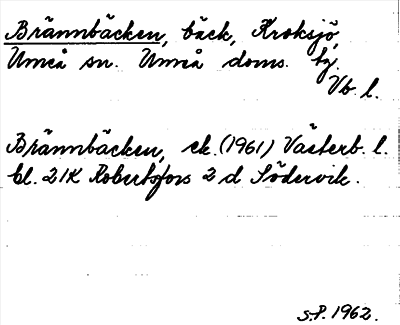 Brännbäcken, bäck, Kroksjö,
Umeå sn. Umeå doms. hj.
Vb. l.
Brännbäcken, ek. (1961) Västerb. l.
bl. 21K Robertsfors 2 d Södervik.
S.P. 1962.